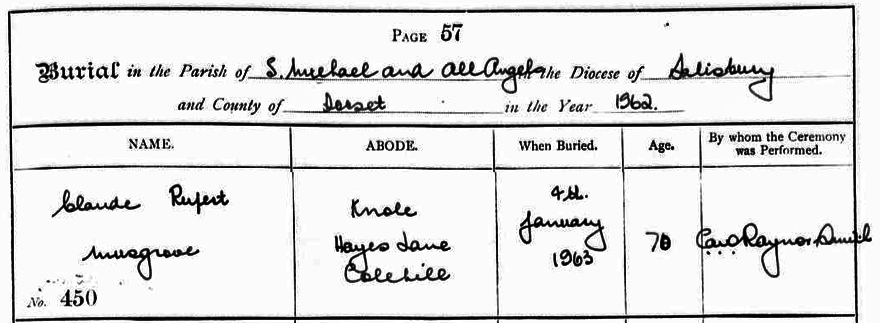 PAGE 57
Burial in the Parish of S. Michael and All Angels the Diocese of Salisbury
and County of Dorset in the Year 1962.
NAME. ABODE. When Buried. Age. By whom the Ceremony was Performed.
Claude Rupert
Musgrove
Knole
Hayes Lane
Colehill
4th.
January
1963
70
Raynor Smith
No. 450